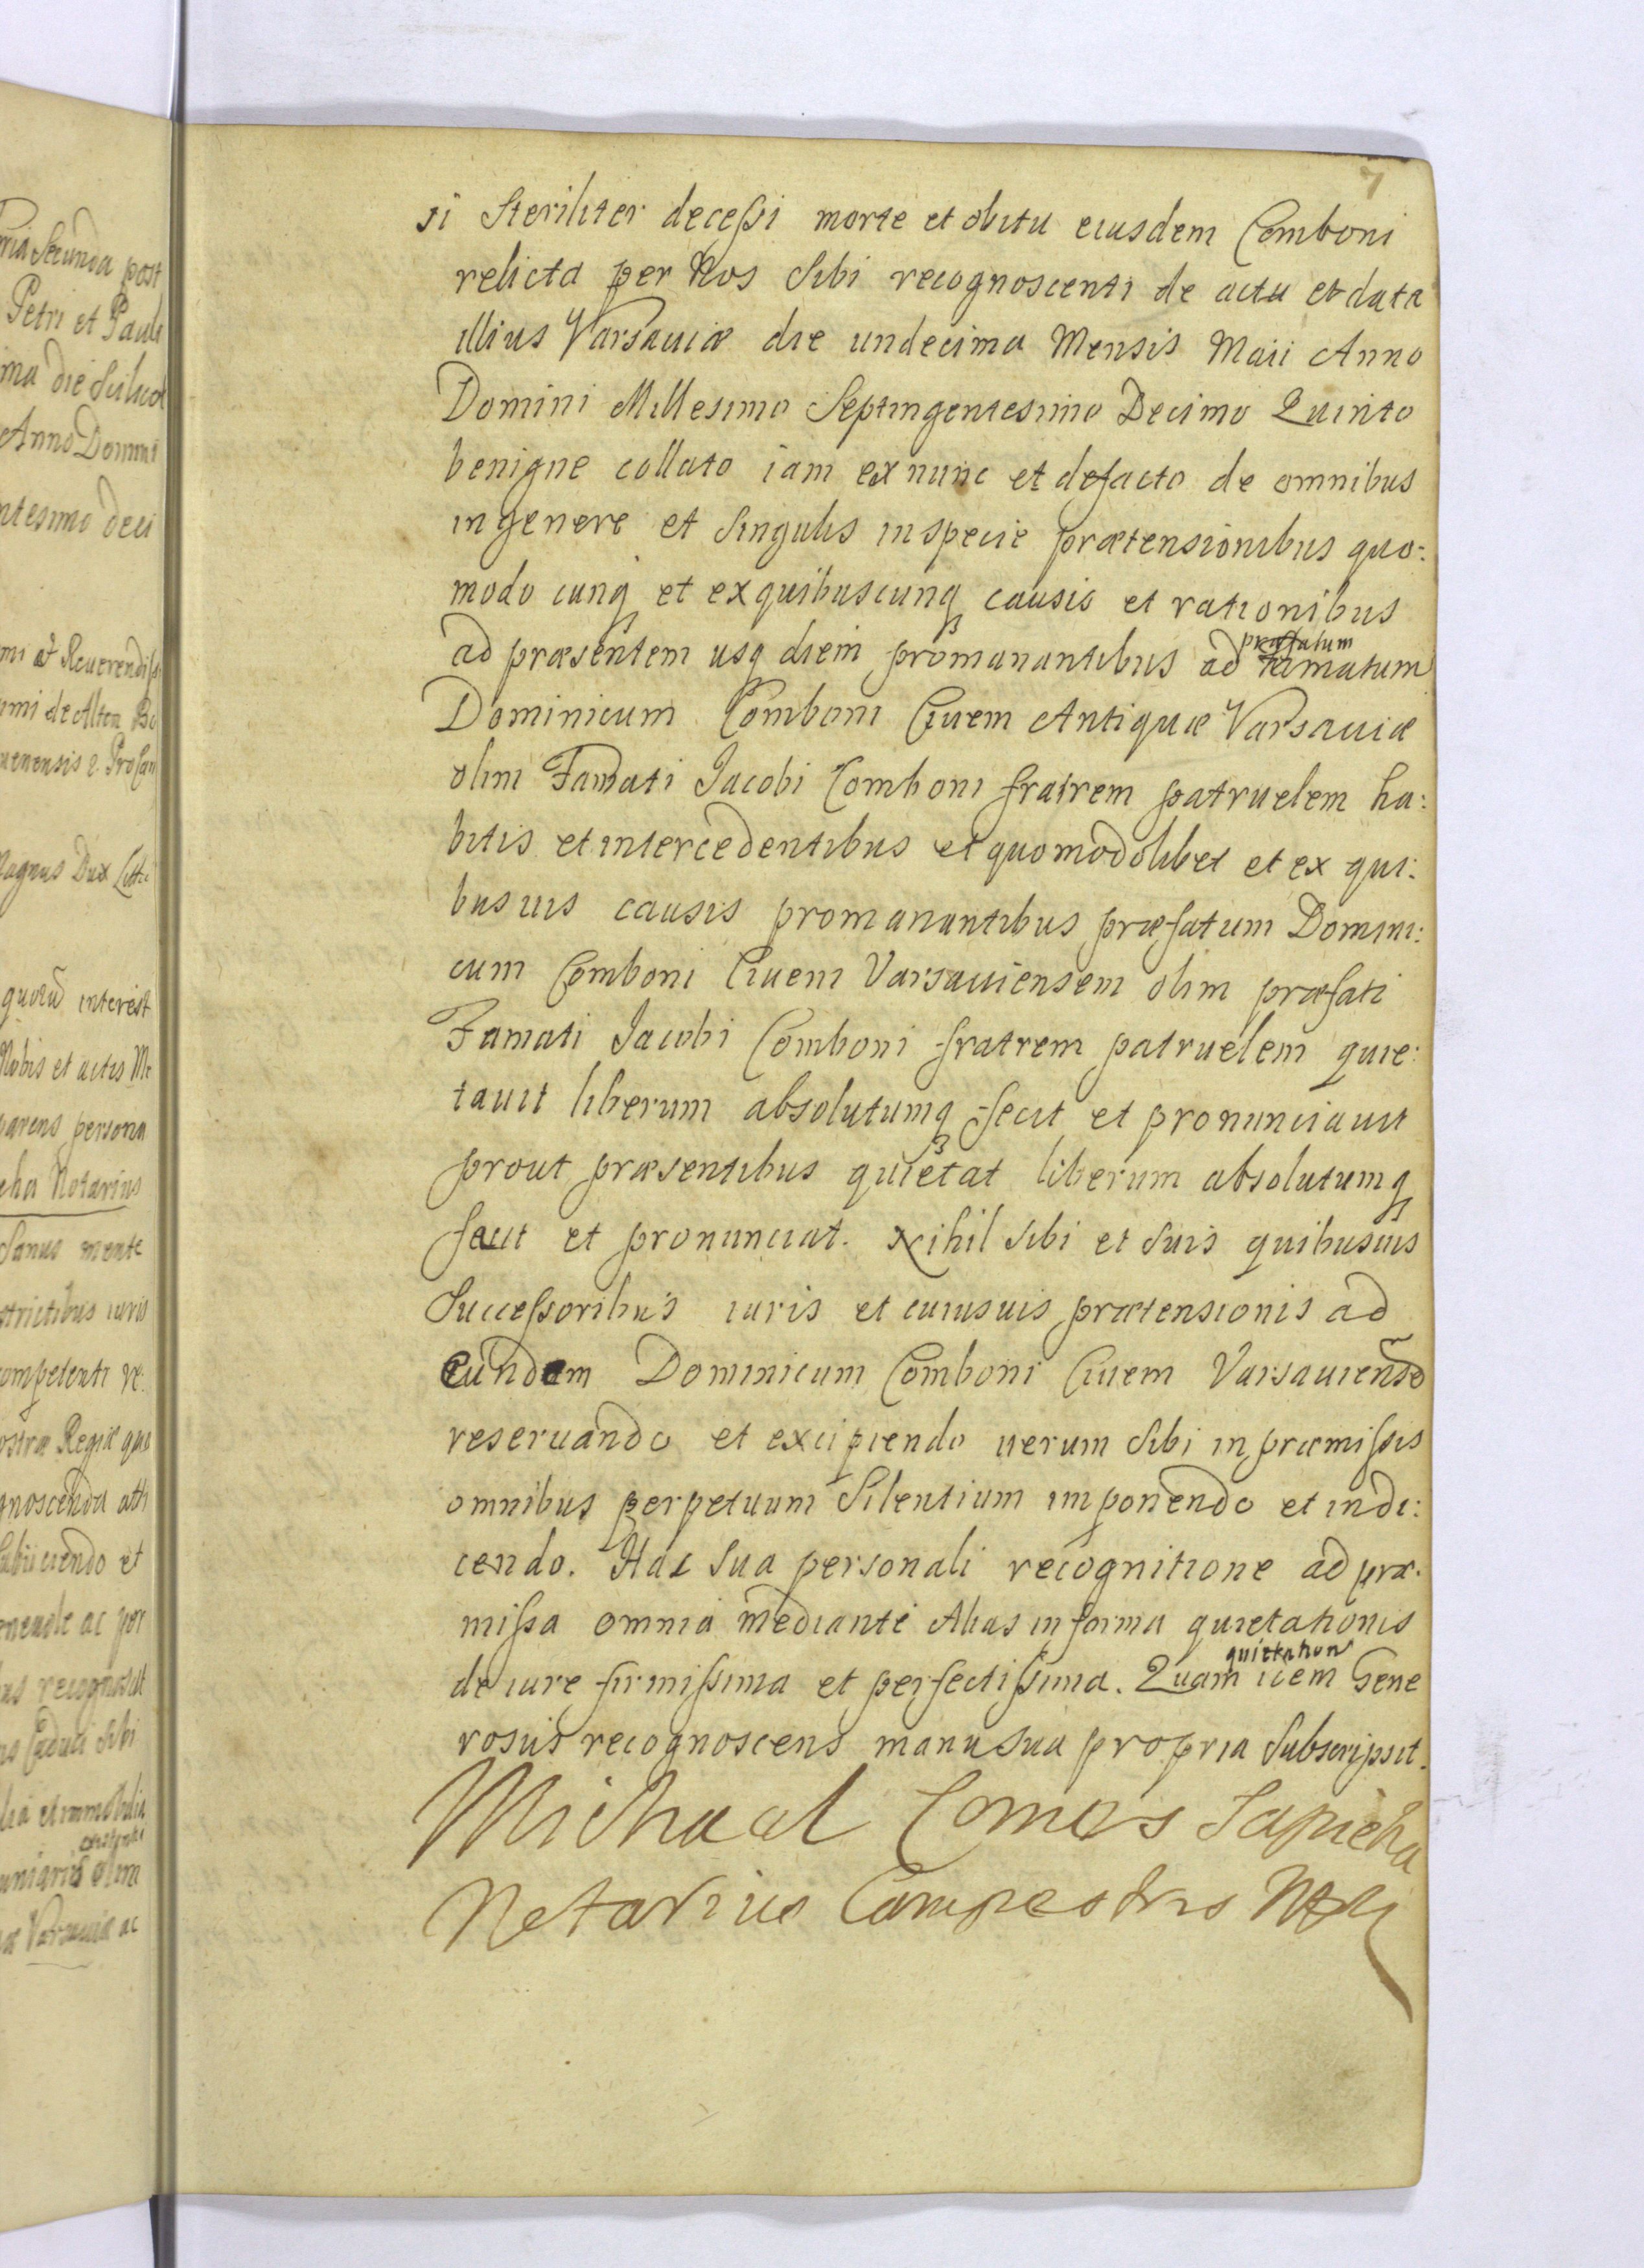 7
si Steriliter decessi morte et obitu eiusdem Comboni
relicta per Nos Sibi recognoscenti de actu et data
illius Varsauiæ die undecima Mensis Maii Anno
Domini Millesimo Septingentesimo Decimo Quinto
benigne collato iam ex nunc et defacto de omnibus
in genere et Singulis in specie prætensionibus quo:
modo cunq3 et ex quibuscunq3 causis et rationibus
ad præsentem usq3 diem promanantibus ad præfatum famatum
Dominicum Comboni Ciuem Antiquæ Varsauiæ
olim Famati Jacobi Comboni fratrem patruelem ha:
bitis et intercedentibus et quomodolibet et ex qui:
busuis causis promanantibus præfatum Domini:
cum Comboni Ciuem Varsauiensem olim præfati
Famati Jacobi Comboni fratrem patruelem quie:
tauit liberum absolutumq3 fecit et pronunciauit
prout præsentibus quietat liberum absolutumq3
facit et pronunciat. Nihil Sibi et Suis quibusuis
Successoribus iuris et cuiusuis prætensionis ad
Eundem Dominicum Comboni Ciuem Varsauiens̃e
reseruando et excipiendo uerum Sibi in præmissis
omnibus perpetuum Silentium imponendo et indi:
cendo. Hac Sua personali recognitione ad præ.
missa omnia mediante Alias in forma quietationis
de iure firmissima et perfectissima. Quam quietation idem Gene
rosus recognoscens manu Sua propria Subscripsit.
Michael Comes Sapieha
Notarius Campestris MDL
ria Secunda post
Petri et Pauli
ma die Scilicet
Anno Domini
ntesimo deci
mi et Reuerendiss
mi de Alten Bo
uenensis & Prosan
Magnus Dux Litt
quorũ interest
Nobis et actis Me
parens persona
eha Notarius
Sanus mente
strictibus iuris
competenti re:
ostræ Regiæ qua
gnoscenda atti
Subiiciendo et
ac per
us recognoscit
Caduci Sibi
lia et immobilia
olim
Varsauia ac